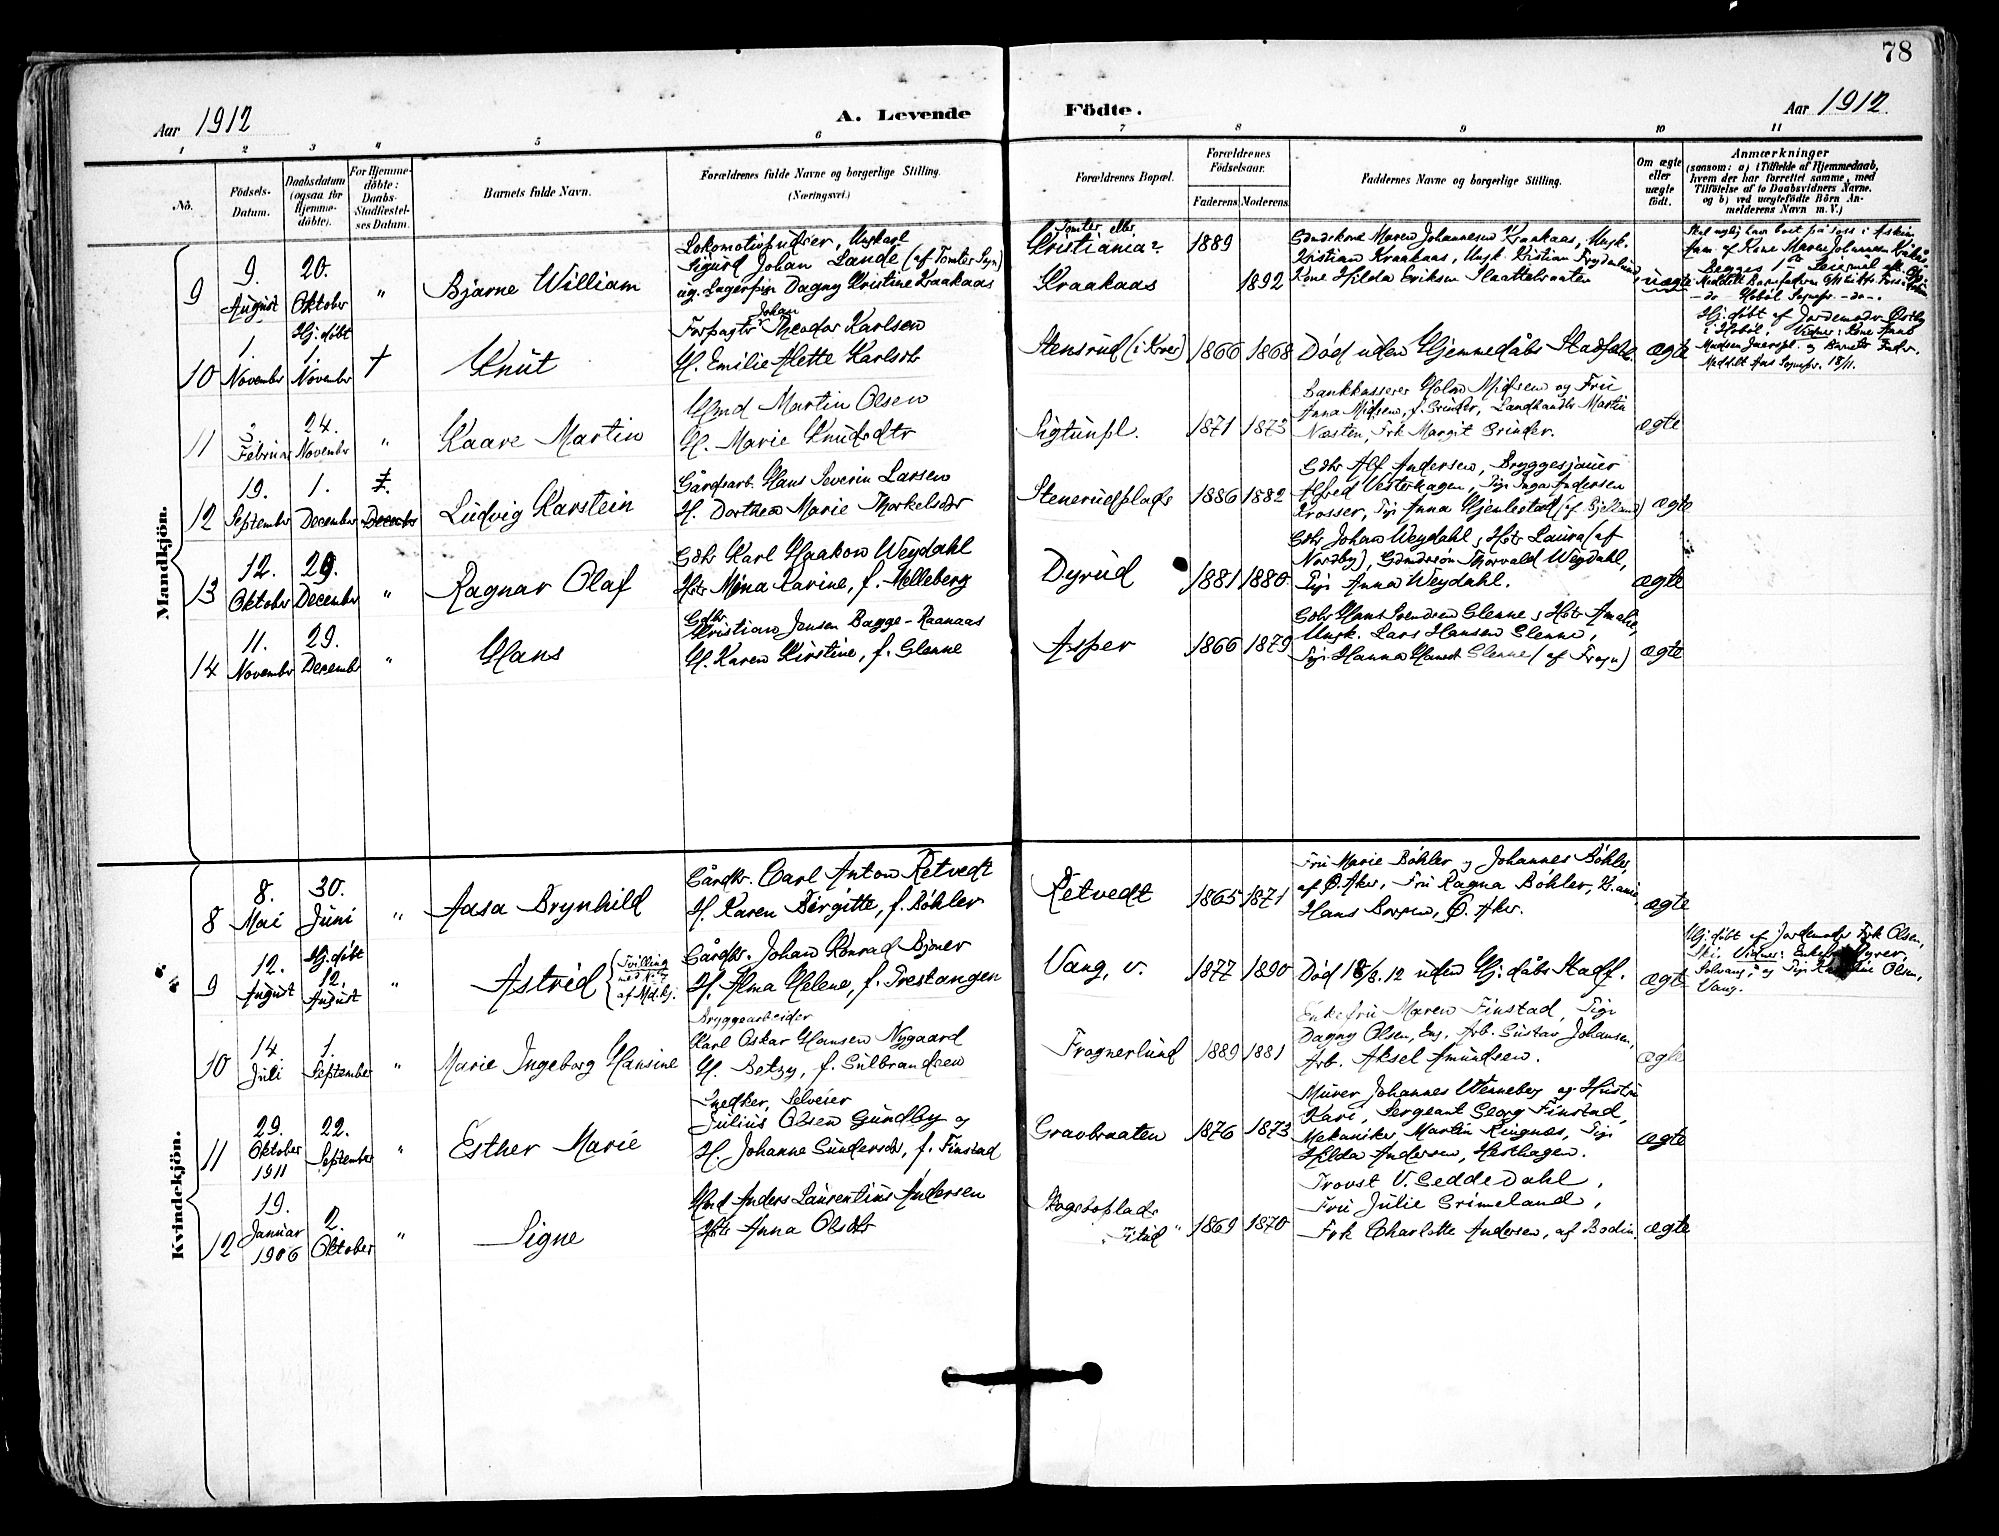 78
Aar 1912
A. Levende
Födte.
Aar 1912
1 2 3 4 5 6 7 8 9 10 11
No.
Födsels-
Datum.
Daabsdatum
(ogsaa for
Hjemme-
döbte).
For Hjemme-
döbte:
Daabs-
Stadfæstel-
ses Datum.
Barnets fulde Navn.
Forældrenes fulde Navne og borgerlige Stilling.
(Næringsvei.)
Forældrenes Bopæl.
Forældrenes
Födselsaar.
Faderens Moderens
Faddernes Navne og borgerlige Stilling.
Om ægte
eller
uægte
födt.
Anmærkninger
(saasom: a) i Tilfælde af Hjemmedaab,
hvem der har forrettet samme, med
Tilföielse af to Daabsvidners Navne.
og b) ved uægtefödte Börn An-
melderens Navn m. V.)
Mandkjön.
9
9.
August
20.
Oktober
"
Bjarne William
Lokomotivpudser, Ungkarl
Sigurd Johan Lande (af Tomter Sogn)
ug. Dagny Kristine Kraakaas
Tomter eller
Kristiania?
Kraakaas
1889
1892
Maren Johannesen Kraakaas, Ungk.
Kristian Kraakaas, Ungk. Kristian
Kone Hilda Eriksen Slaattebraaten
uægte
10
1.
November
Hj. døbt
1.
November
+
Knut
Johan
Forpagter Theodor Karlsen
H. Emilie Alette Karlsdtr
Stensrud (i Kroer)
1866
1868
Død uden Hjemmedåbs Stadfæst.
ægte
Hj. døbt af Jordemoder Østby
i Hobøl.
11
2.
Februar
24.
November
"
Kaare Martin
Hmd Martin Olsen
H. Marie Knudsdtr
Sigtunpl.
1871
1873
Bankkasserer Holm Midsem og Fru
Anna Midsem, f. Grinder, Landhandler Martin
Næsten, Frk Margit Grinder.
ægte
12
19.
September
1.
December
December
Ludvig Karstein
Gårdsarb. Hans Severin Larsen
H. Dorthea Marie Thorkelsdtr
Stenerudplads
1886
1882
Gbr Alf Andersen, Bryggesjauer
Alfred Vesterhagen, Pige Inga Andersen
Krosser, Pige Anna
ægte
13
12.
Oktober
29.
December
"
Ragnar Olaf
Gbr Karl Haakon Weydahl
Htr Mina Karine, f. Melleberg
Dyrud
1881
1880
Gbr Johan Weydahl, Htr Laura (af
Nordby), Gårdmdssøn Thorvald Weydahl,
Pige Anna Weydahl.
ægte
14
11.
November
29.
December
"
Hans
Gbr
Kristian Jensen Bagge-Raanaas
H. Karen Kirstine, f. Glenne
Asper
1866
1879
Gbr Hans Svendsen Glenne, Htr Amalie,
Ungk. Lars Hansen Glenne,
Pige Hanna Glenne (af Frogn)
ægte
Kvindekjön.
8
8.
Mai
30.
Juni
"
Aasa Brynhild
Gårdbr. Carl Anton Retvedt
H. Karen Birgitte, f. Bøhler
Retvedt
1865
1871
Fru Marie Bøhler og Johannes Bøhler,
af Ø. Aker, Fru Ragna Bøhler,
Hans Ø. Aker.
ægte
9
12.
August
Hj. døbt
12.
August
"
Astrid
Tvilling
med N. 7
af Md. kj.
Gårdbr. Johan Konrad Bjøner
H. Alma Helene, f. Prestangen
Vang, v.
1877
1890
Død 18/8.12 uden Hj. dåbs Stadf.
ægte
Hj. døbt af Jordemoder Frk Olsen,
Ski. Vidner:
Olsen,
Vang.
10
14
Juli
1.
September
"
Marie Ingeborg Hansine
Bryggearbeider
Karl Oskar Hansen Nygaard
H. Betzy, f. Gulbrandsen
Frognerlund
1889
1881
Enkefru Maren Finstad, Pige
Dagny Olsen, Eng, Arb. Gustav Johansen,
Arb. Aksel Amundsen.
ægte
11
29.
Oktober
1911
22.
September
"
Esther Marie
Snedker, Selveier
Julius Olsen Gundby og
H. Johanne Gundersdr, f. Finstad
Gravbraaten
1876
1873
Murer Johannes Wenneberg og Hustru
Kari, Sergeant Georg Finstad,
Mekaniker Martin Ringnæs, Pige
Hilda Andersen, Hesthagen.
ægte
12
19.
Januar
1906
2.
Oktober
"
Signe
Hmd Anders Laurentius Andersen
Htr Anna Olsdtr
1869
1870
Provst V. Geddedahl,
Fru Julie Grimeland,
Frk Charlotte Andersen, af Bodin.
ægte